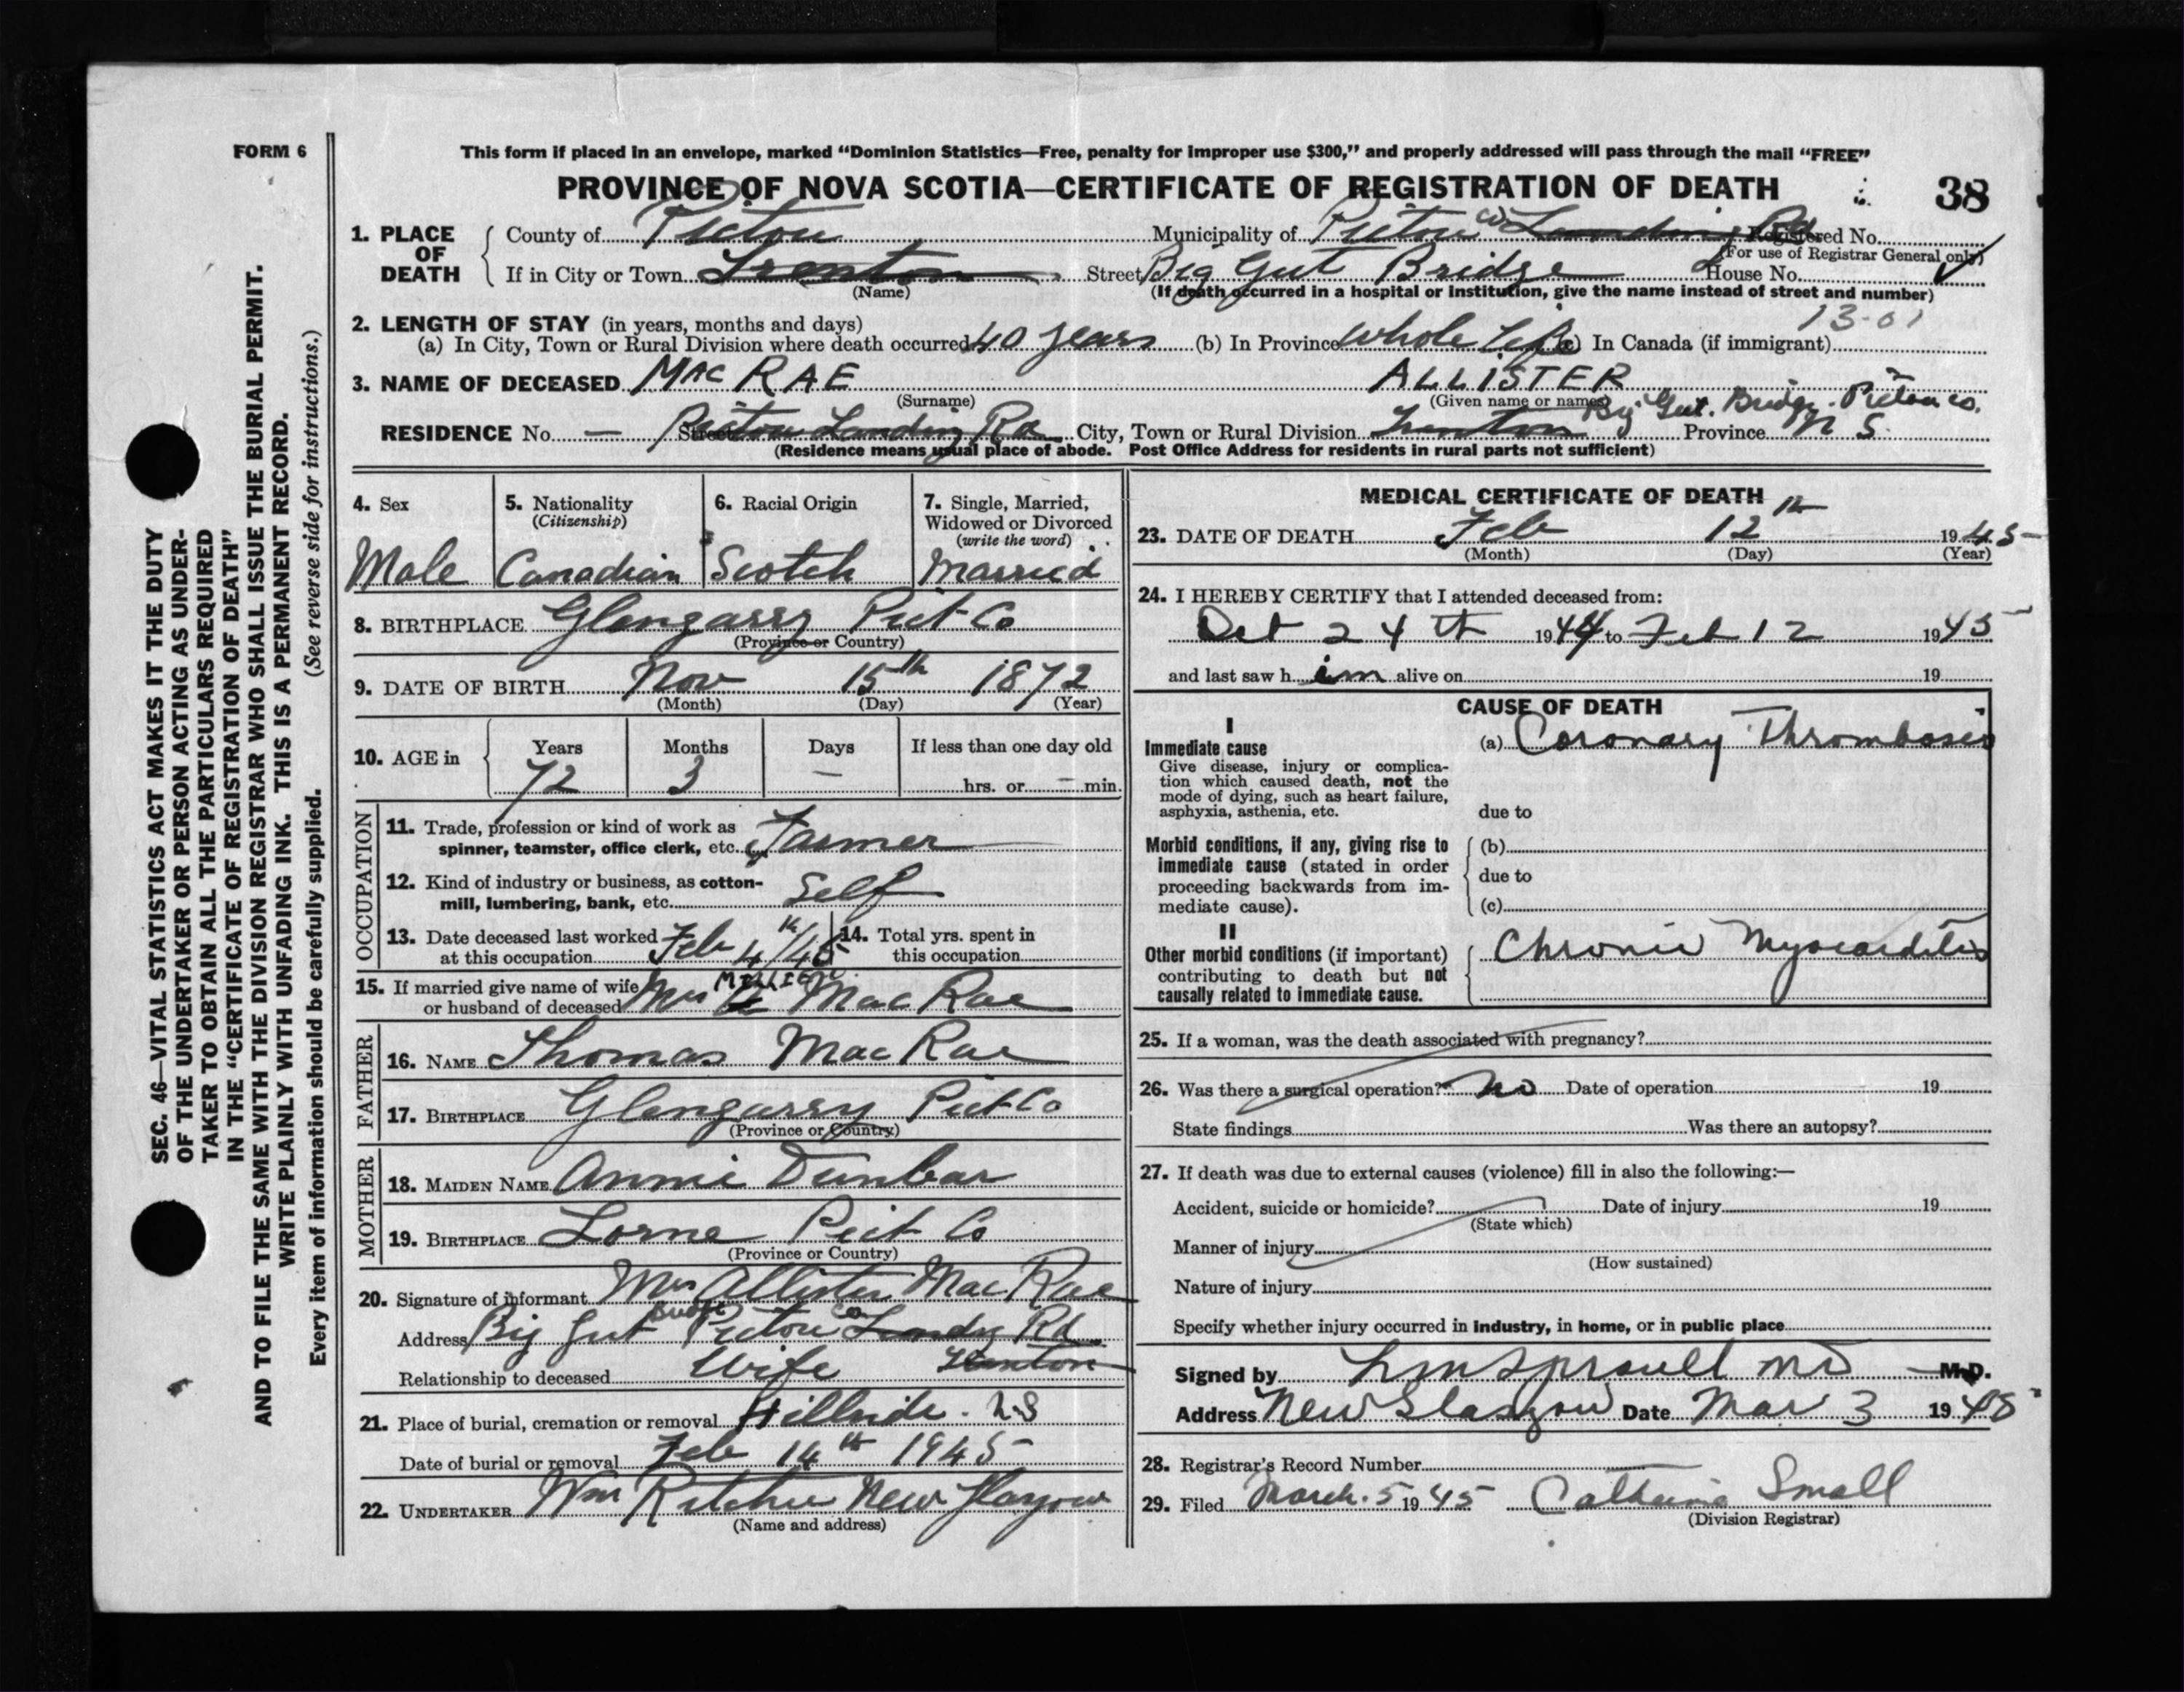 FORM 6
This form if placed in an envelope, marked “Dominion Statistics—Free, penalty for improper use $300,” and properly addressed will pass through the mail “FREE”
PROVINCE OF NOVA SCOTIA—CERTIFICATE OF REGISTRATION OF DEATH
38
1. PLACE OF DEATH
County of Pictou Municipality of Pictou Co Landing Rd Registered No.
(For use of Registrar General only)
If in City or Town Trenton Street Big Gut Bridge House No.
(Name)
(If death occurred in a hospital or institution, give the name instead of street and number)
13-01
2. LENGTH OF STAY (in years, months and days)
(a) In City, Town or Rural Division where death occurred 40 years (b) In Province Whole Life (c) In Canada (if immigrant)
3. NAME OF DECEASED MAC RAE ALLISTER
(Surname) (Given name or names)
Big Gut. Bridge. Pictou Co.
RESIDENCE No. — Street Pictou Landing Rd City, Town or Rural Division Trenton Province N S.
(Residence means usual place of abode. Post Office Address for residents in rural parts not sufficient)
4. Sex
Male
5. Nationality
(Citizenship)
Canadian
6. Racial Origin
Scotch
7. Single, Married,
Widowed or Divorced
(write the word)
Married
8. BIRTHPLACE Glengarry Pict Co
(Province or Country)
9. DATE OF BIRTH Nov 15th 1872
(Month) (Day) (Year)
10. AGE in
Years Months Days If less than one day old
72 3 — hrs. or — min.
OCCUPATION
11. Trade, profession or kind of work as
spinner, teamster, office clerk, etc. Farmer
12. Kind of industry or business, as cotton-
mill, lumbering, bank, etc. Self
13. Date deceased last worked
at this occupation Feb 4th/45
14. Total yrs. spent in
this occupation
15. If married give name of wife
or husband of deceased Mrs MILLIE Mac Rae
FATHER
16. NAME Thomas Mac Rae
17. BIRTHPLACE Glengarry Pict Co
(Province or Country)
MOTHER
18. MAIDEN NAME Annie Dunbar
19. BIRTHPLACE Lorne Pict Co
(Province or Country)
20. Signature of informant Mrs Allister Mac Rae
Address Big Gut Bridge Pictou Co Landing Rd
Trenton
Relationship to deceased Wife
21. Place of burial, cremation or removal Hillside. N.S
Date of burial or removal Feb 14th 1945
22. UNDERTAKER Wm Ritchie New Glasgow
(Name and address)
MEDICAL CERTIFICATE OF DEATH
23. DATE OF DEATH Feb 12th 1945
(Month) (Day) (Year)
24. I HEREBY CERTIFY that I attended deceased from:
Oct 24th 1944 to Feb 12 1945
and last saw him alive on 19
CAUSE OF DEATH
I
Immediate cause
Give disease, injury or complica-
tion which caused death, not the
mode of dying, such as heart failure,
asphyxia, asthenia, etc.
(a) Coronary Thrombosis
due to
Morbid conditions, if any, giving rise to
immediate cause (stated in order
proceeding backwards from im-
mediate cause).
(b)
due to
(c)
II
Other morbid conditions (if important)
contributing to death but not
causally related to immediate cause.
Chronic Myocarditis
25. If a woman, was the death associated with pregnancy?
26. Was there a surgical operation? no Date of operation 19
State findings Was there an autopsy?
27. If death was due to external causes (violence) fill in also the following:—
Accident, suicide or homicide? Date of injury 19
(State which)
Manner of injury
(How sustained)
Nature of injury
Specify whether injury occurred in industry, in home, or in public place
Signed by L M Sproull MD M.D.
Address New Glasgow Date Mar 3 1945
28. Registrar's Record Number
29. Filed March. 5 1945 Catherine Small
(Division Registrar)
SEC. 46—VITAL STATISTICS ACT MAKES IT THE DUTY
OF THE UNDERTAKER OR PERSON ACTING AS UNDER-
TAKER TO OBTAIN ALL THE PARTICULARS REQUIRED
IN THE “CERTIFICATE OF REGISTRATION OF DEATH”
AND TO FILE THE SAME WITH THE DIVISION REGISTRAR WHO SHALL ISSUE THE BURIAL PERMIT.
WRITE PLAINLY WITH UNFADING INK. THIS IS A PERMANENT RECORD.
Every item of information should be carefully supplied. (See reverse side for instructions.)